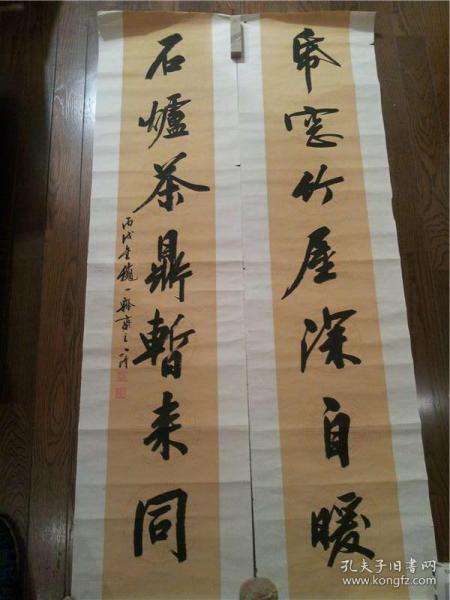 帋窓竹屋深自暖
石爐茶鼎暫来同
丙戌
孔夫子旧书网
www.kongfz.com